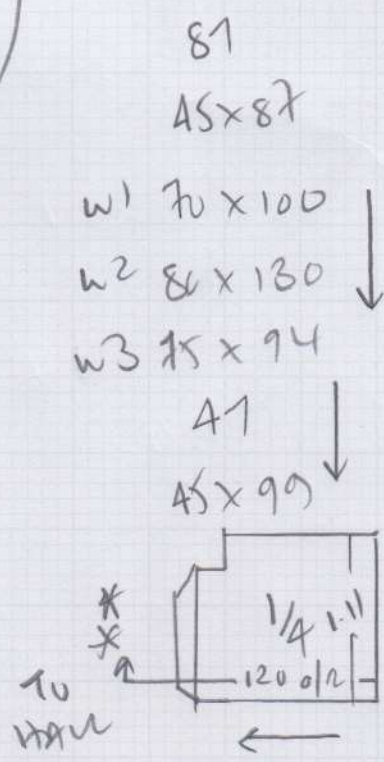 81
45x87
w1 70 x 100
w2 86 x 130
w3 75 x 94
41
45 x 99
1/4
120 o/2
To
HALL